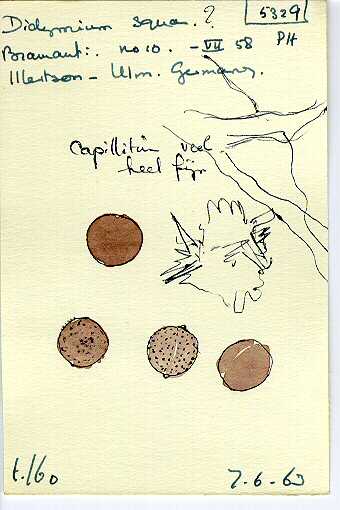 Didymium squa. ?
5329
Bramant:. no 10. - VII 58 PH
Illertson - Ulm. Germany.
Capillitium veel
heel fijn
t./60
7-6-60